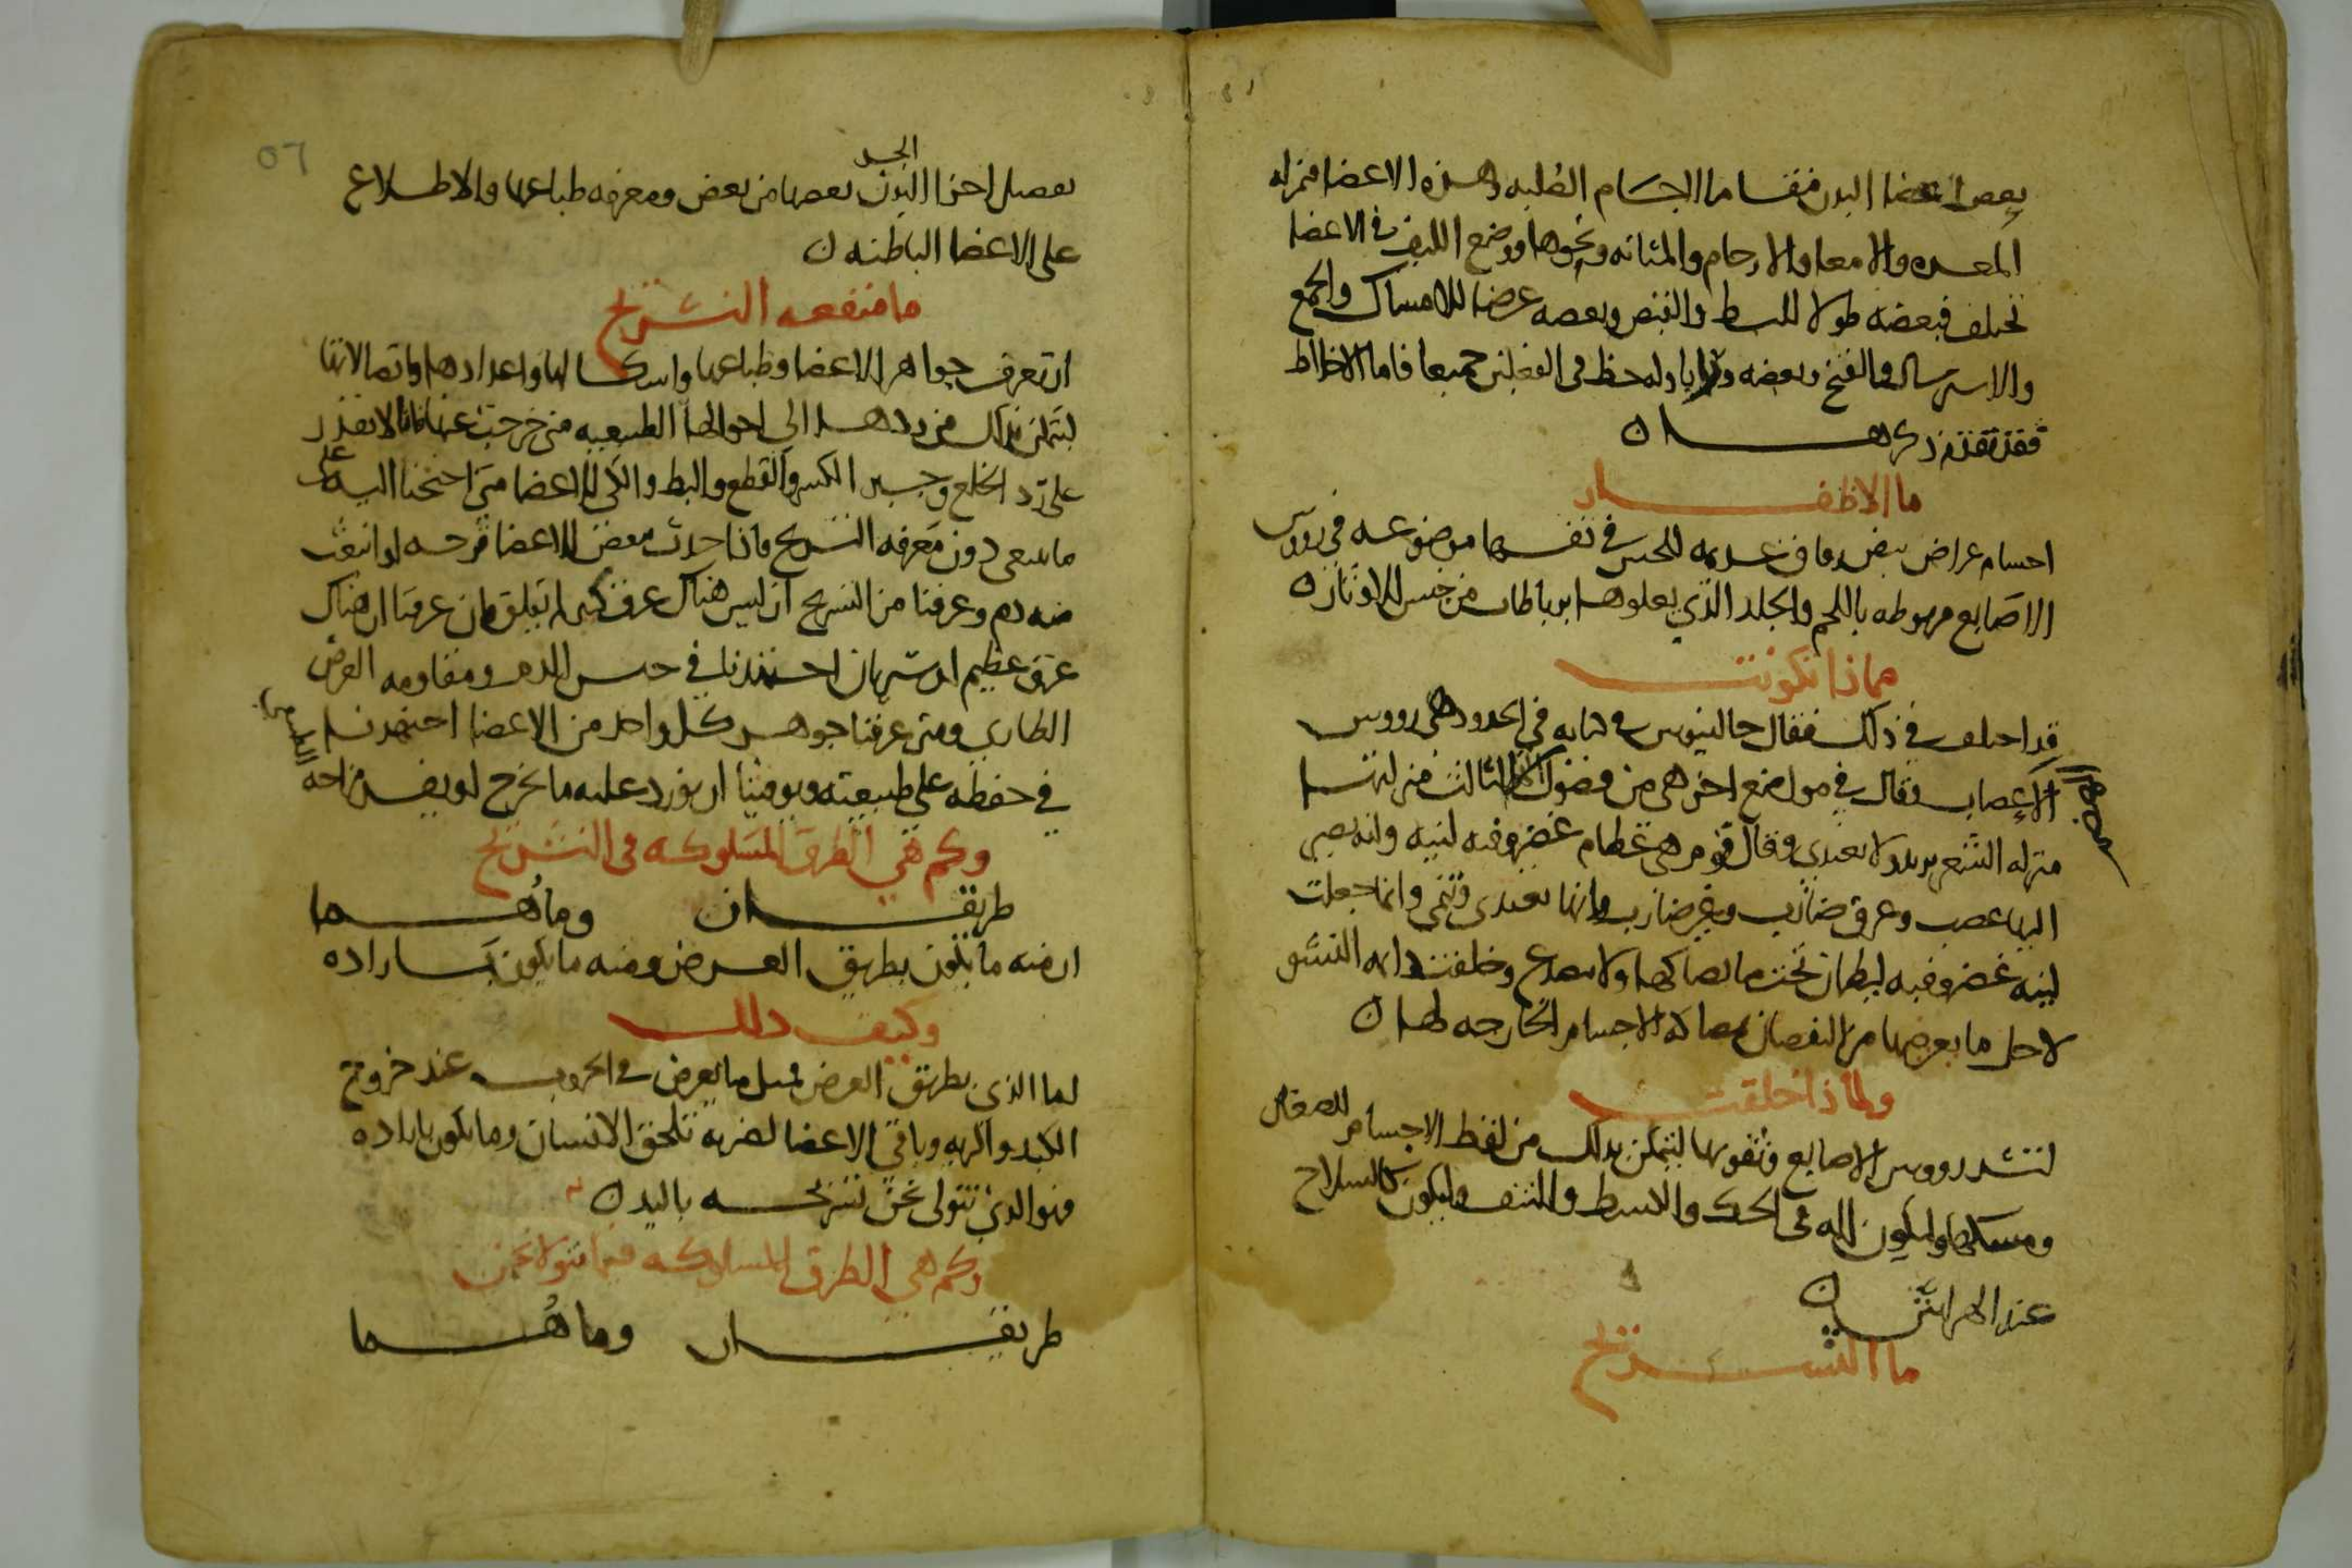 بعض اعضا البدن فقسا ما الجسام الصلبه وهذه الاعضا بمنزله
المعده والامعا والارحام والمثانه ونحوها ووضع الليف في الاعضا
تختلف فبعضه طولا للبسط والقبض وبعضه عرضا للامساك والجمع
والاسترسال والفتخ وبعضه ورابا وله حظ في الفعلين جميعا فاما الاخلاط
فقد تقدم ذكرها ن
ما الاظفار
اجسام عراض بيض رقاق عديمه للحس في نفسها موضوعه في رووس
الاصابع مربوطه باللحم والجلد الذي يعلوها برباطات من جنس الاوتار ن
مماذا تكونت
قد اختلف في ذلك فقال جالينوس في كتابه في الحدود هي رووس
الاعصاب وقال في مواضع اخر هي من فضول الثالث منزلتها
منزله الشعر يربدو لا تغتدي وقال قوم هي عظام غضروفيه لينيه وانه يجي
اليها عصب وعرق ضارب وغير ضارب وانها تغتدي وتنمي وانما جعلت
لينه غضروفيه ليطمان تحت ما يصاكها ولا تنصدع وخلقت دايمه النشو
لاجل ما يعرض لها من النقصان بمصاكه الاجسام الخارجه لها ن
ولماذا خلقت
لتشد رووس الاصابع وتقويها ليتمكن بذلك من لقط الاجسام الصغار
ومسكها وليكون اله في الحك والبسط والنتف وليكون كالسلاح
عند الهراش ن
ما التشريح
٥٦
الجسد
تفصيل اجزا البدن بعضها من بعض ومعرفه طباعها والاطلاع
على الاعضا الباطنه ن
ما منفعه التشريح
ان تعرف جواهر الاعضا وطباعها واشكالها واعدادها واتصالاتها
ليتمكن بذلك من ردها الى احوالها الطبيعيه متى خرجت عنها فانا لا نقدر
على رد الخلع وجبر الكسر والقطع والبط والكي للاعضا متى احتجنا اليه على
ما ينبغي دون معرفه التشريح واذا حدث ببعض الاعضا قرحه او انبعث
منه دم وعرفنا من التشريح ان ليس هناك عرق كبير لم نقلق وان عرفنا ان هناك
عرق عظيم او شريان اجتهدنا في حبس الدم ومقاومه العرض
الطاري ومتى عرفنا جوهر كل واحد من الاعضا اجتهدنا
في حفظه على طبيعته وتوقينا ان نورد عليه ما يخرج او يفسد مزاجه
وكم هي الطرق المسلوكه في التشريح
طريقان وما هما
ان منه ما يكون بطريق العرض ومنه ما يكون باراده
وكيف ذلك
اما الذي بطريق العرض فمثل ما يعرض في الحروب عند خروج
الكبد والريه وباقي الاعضا لضربه تلحق الانسان وما يكون باراده
فهو الذي نتولى نحن تشريحه باليد ن
وكم هي الطرق المسلوكه فيما نتولا نحن
طريقان وما هما